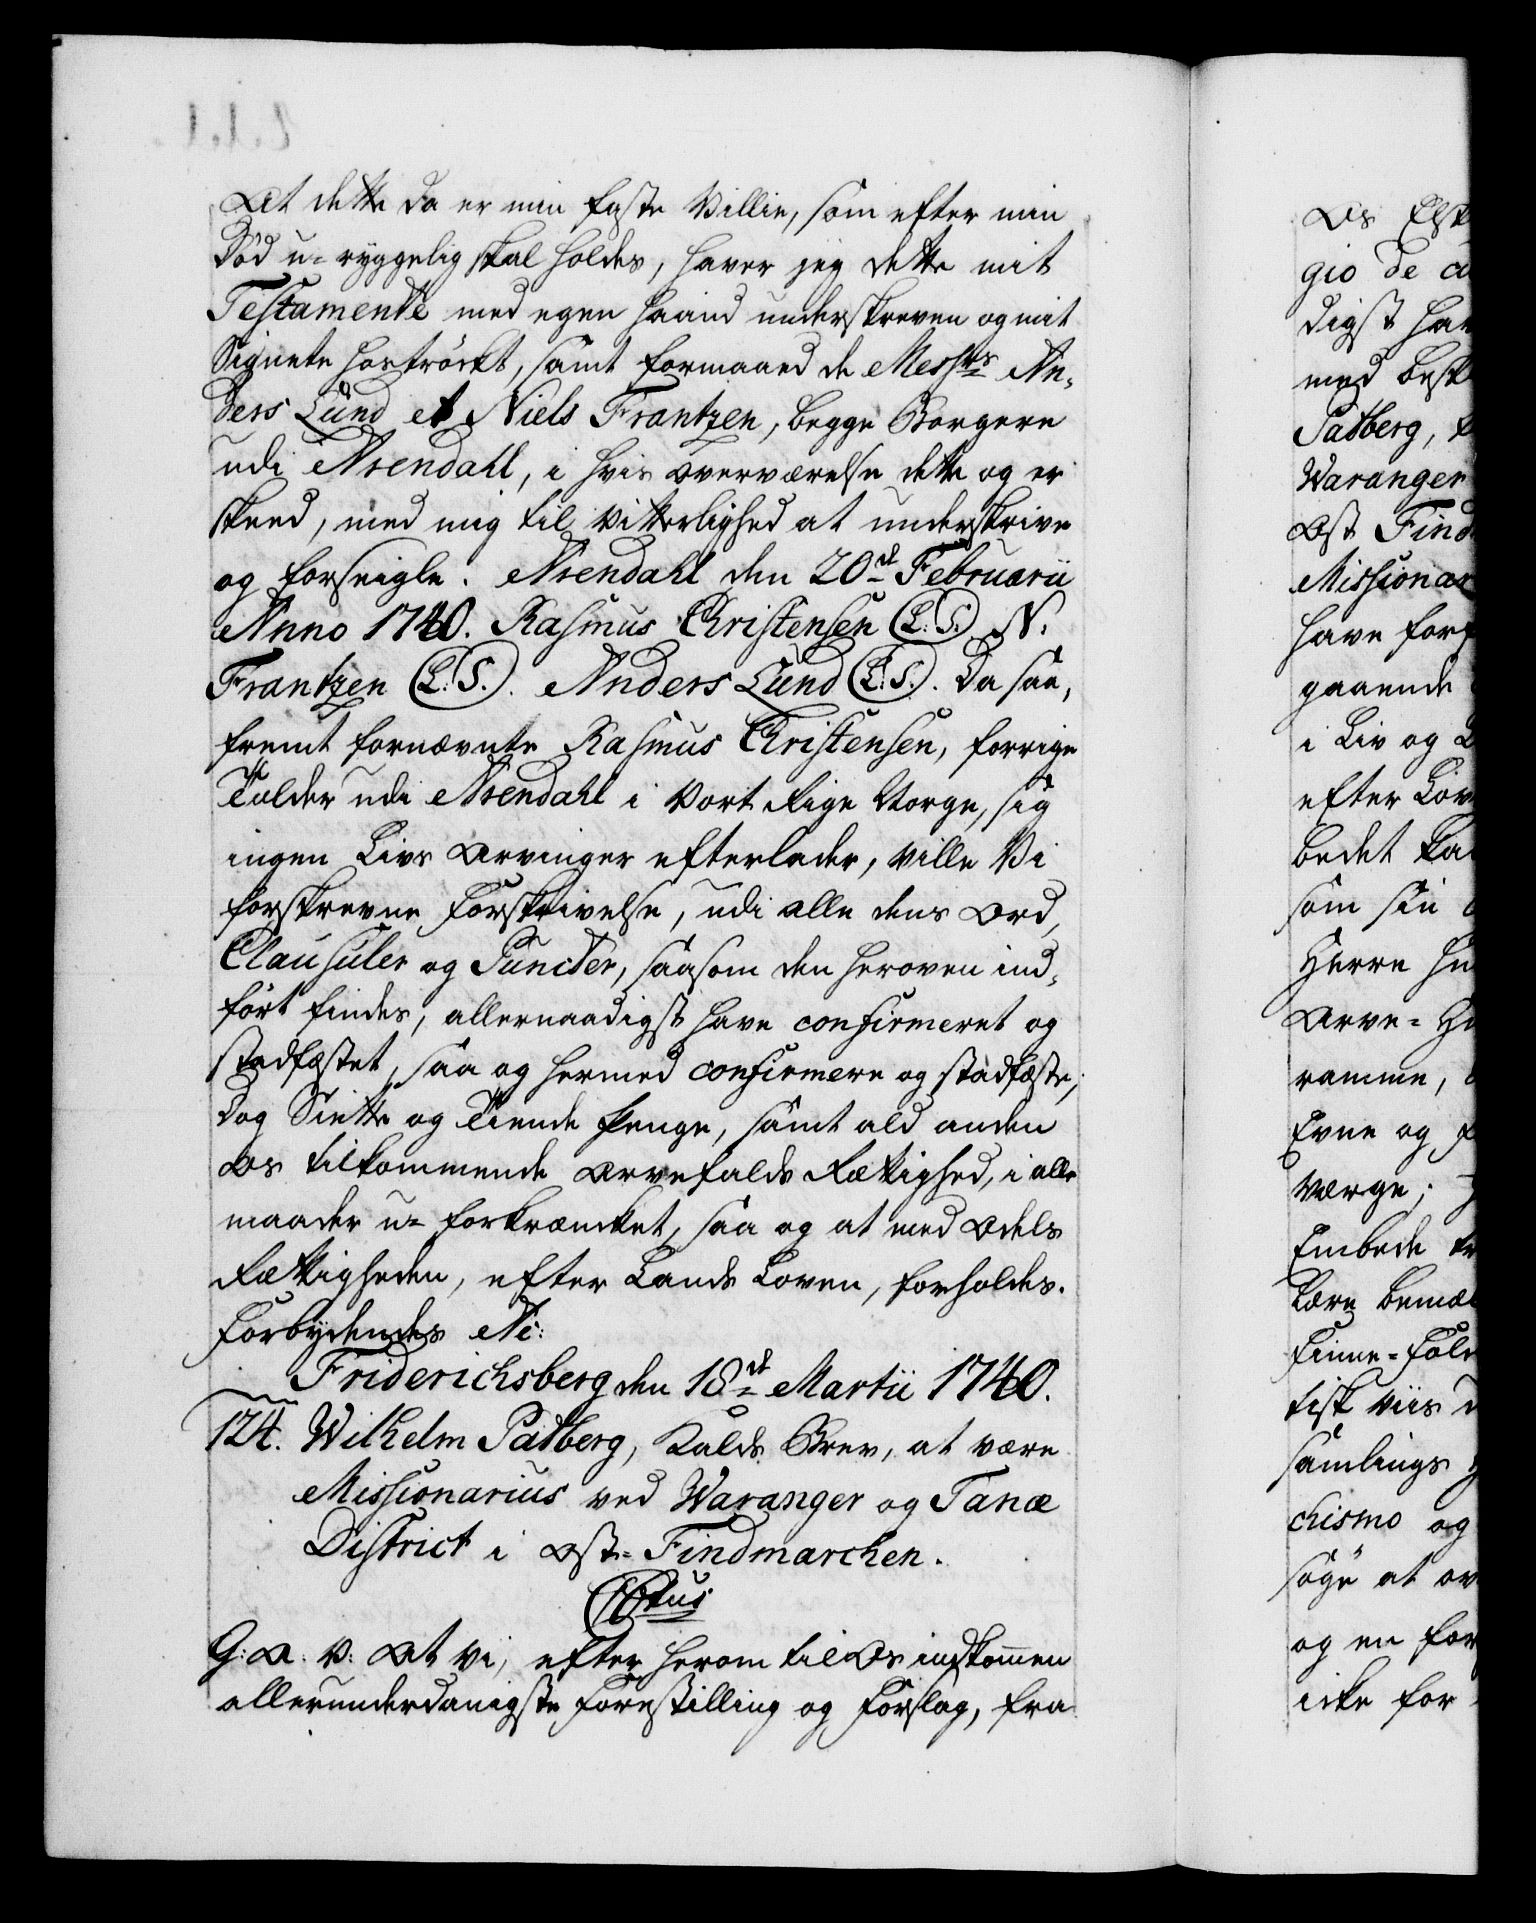 At dette da er min faste Villie, som efter min
Död u-ryggelig skal holdes, haver jeg dette mit
Testamente med egen Haand underskreven og mit
Signete hoströkt, samt formaaed de Messrs An-
ders Lund et Niels Frantzen, begge Borgere
udi Arendahl, i hvis overværelse dette og er
skeed, med mig til Vitterlighed at underskrive
og forseigle. Arendahl den 20de Februarii
Anno 1740. Rasmus Christensen (L.S.) N.
Frantzen (L.S.). Anders Lund (L.S.). Da saa,
fremt fornævnte Rasmus Christensen, forrige
Tolder udi Arendahl i Vort Rige Norge, sig
ingen Livs Arvinger efterlader, ville Vi
forskrevne Forskrivelse, udi alle dens Ord,
Clausuler og Puncter, saasom den heroven ind-
fört findes, allernaadigst have confirmeret og
stadfæstet, saa og hermed confirmere og stadfæste;
Dog Siette og Tiende Penge, samt ald anden
Os tilkommende Arvefalds Rættighed, i alle
maader u-forkræncket, saa og at med Odels
Rættigheden, efter Lands Loven, forholdes.
Forbydendes Ac:
Friderichsberg den 18de Martii 1740.
124. Wilhelm Patberg, Kalds Brev, at være
Missionarius ved Waranger og Tanæ
District i Ost-Findmarchen.
G: A: V: At Vi, efter herom til Os indkommen
allerunderdanigste Forestilling og Forslag, fra
Os Elsk
gio de c
digst hav
med besk
Patberg,
Waranger
Ost Find
Missionar
have for
gaaende
i Liv og
efter Lov
bedet
som sin
Herre
Arve-
ramme,
Evne og
Værge;
Embede
Lære
Finne-
tisk viis
samlings
chismo og
söge at
og en for
icke for